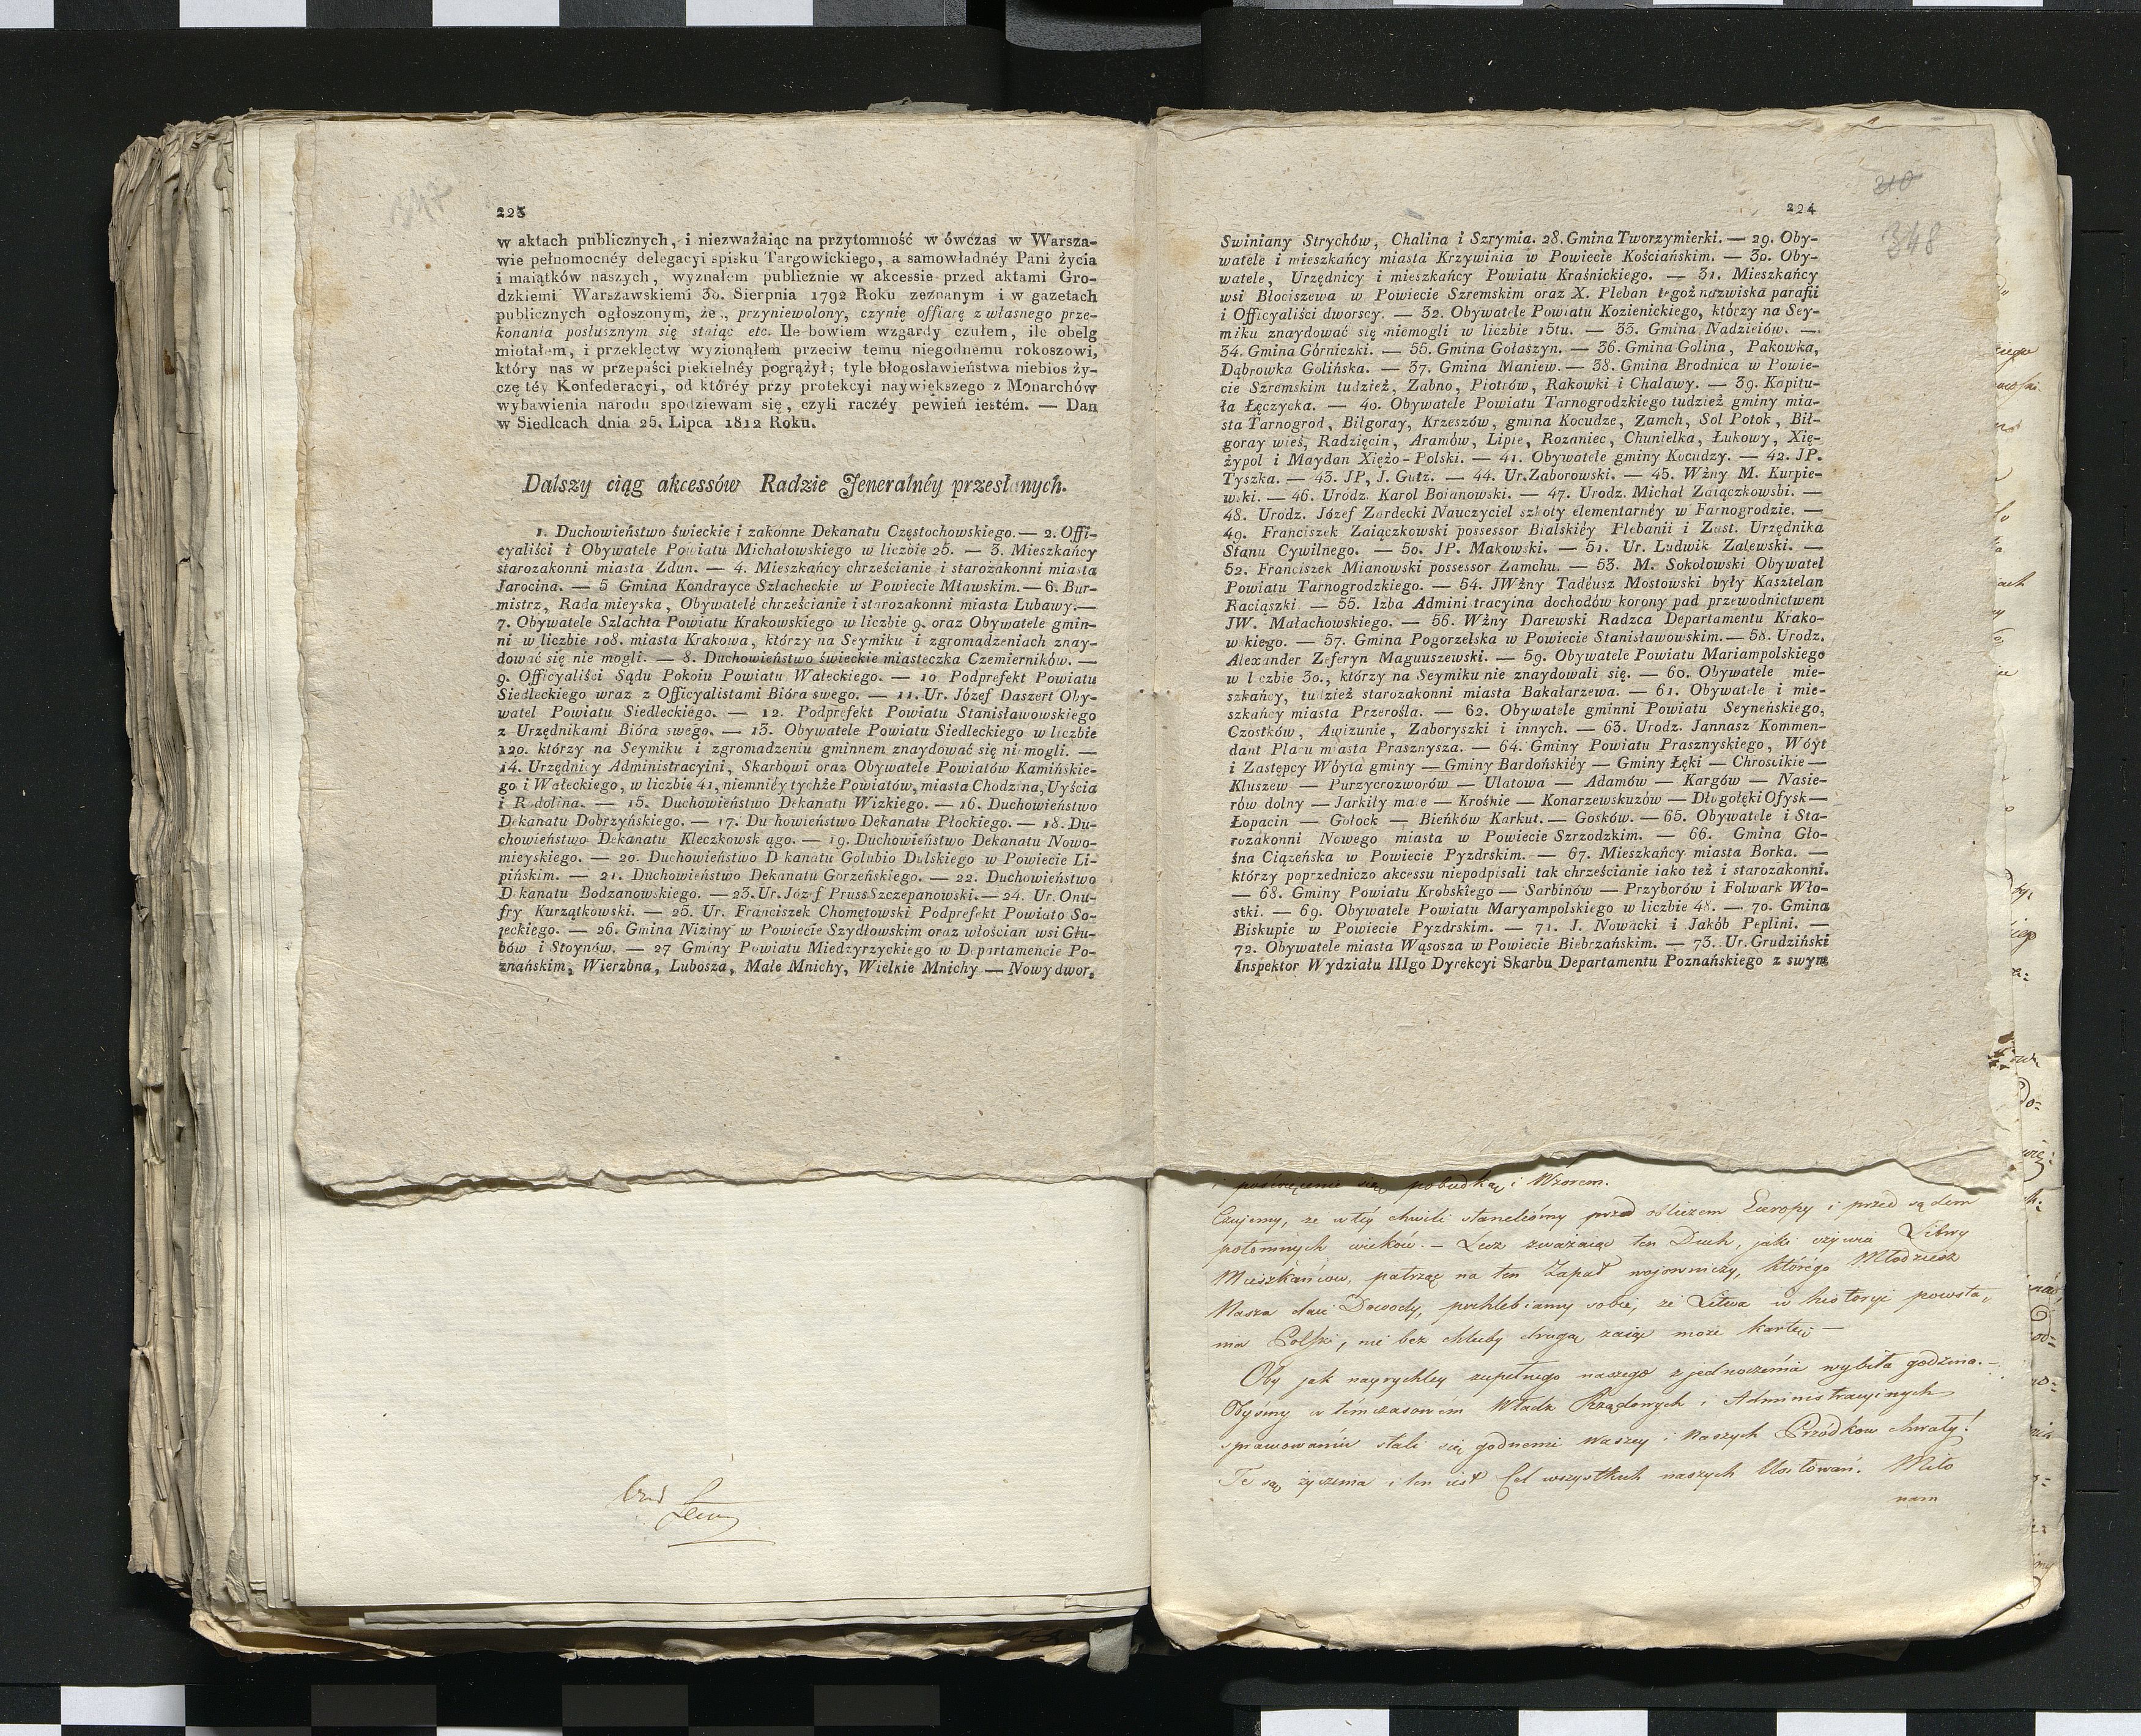 347
223
w aktach publicznych, i niezważaiąc na przytomność w ówczas w Warsza-
wie pełnomocnéy delegacyi spisku Targowickiego, a samowładnéy Pani życia
i maiątków naszych, wyznałem publicznie w akcessie przed aktami Gro-
dzkiemi Warszawskiemi 30. Sierpnia 1792 Roku zeznanym i w gazetach
publicznych ogłoszonym, że „ przyniewolony, czynię offiarę z własnego prze-
konania posłusznym się staiąc etc. Ile bowiem wzgardy czułem, ile obelg
miotałem, i przeklęctw wyzionąłem przeciw temu niegodnemu rokoszowi,
który nas w przepaści piekielnéy pogrążył; tyle błogosławieństwa niebios ży-
czę téy Konfederacyi, od któréy przy protekcyi naywiększego z Monarchów
wybawienia narodu spodziewam się, czyli raczéy pewień iestém. — Dan
w Siedlcach dnia 25. Lipca 1812 Roku.
Dalszy ciąg akcessów Radzie Jeneralnéy przesłanych.
1. Duchowieństwo świeckie i zakonne Dekanatu Częstochowskiego. — 2. Offi-
cyaliści i Obywatele Powiatu Michałowskiego w liczbie 25. — 3. Mieszkańcy
starozakonni miasta Zdun. — 4. Mieszkańcy chrześcianie i starozakonni miasta
Jarocina. — 5 Gmina Kondrayce Szlacheckie w Powiecie Mławskim. — 6. Bur-
mistrz, Rada mieyska, Obywatelé chrześcianie i starozakonni miasta Lubawy. —
7. Obywatele Szlachta Powiatu Krakowskiego w liczbie 9. oraz Obywatele gmin-
ni w liczbie 108. miasta Krakowa, którzy na Seymiku i zgromadzeniach znay-
dować się nie mogli. — 8. Duchowieństwo świeckie miasteczka Czemierników. —
9. Officyaliści Sądu Pokoiu Powiatu Wałeckiego. — 10. Podprefekt Powiatu
Siedleckiego wraz z Officyalistami Bióra swego. — 11. Ur. Józef Daszert Oby-
watel Powiatu Siedleckiego. — 12. Podprefekt Powiatu Stanisławowskiego
z Urzędnikami Bióra swego. — 13. Obywatele Powiatu Siedleckiego w liczbie
120. którzy na Seymiku i zgromadzeniu gminnem znaydować się niemogli. —
14. Urzędnicy Administracyini, Skarbowi oraz Obywatele Powiatów Kamińskie-
go i Wałeckiego, w liczbie 41, niemniéy tychże Powiatów, miasta Chodzina, Uyścia
i Radolina. — 15. Duchowieństwo Dekanatu Wizkiego. — 16. Duchowieństwo
Dekanatu Dobrzyńskiego. — 17. Duchowieństwo Dekanatu Płockiego. — 18. Du-
chowieństwo Dekanatu Kleczkowskiago. — 19. Duchowieństwo Dekanatu Nowo-
mieyskiego. — 20. Duchowieństwo Dekanatu Golubio Dulskiego w Powiecie Li-
pińskim. — 21. Duchowieństwo Dekanatu Gorzeńskiego. — 22. Duchowieństwo
Dekanatu Bodzanowskiego. — 23. Ur. Józef Pruss Szczepanowski. — 24. Ur. Onu-
fry Kurzątkowski. — 25. Ur. Franciszek Chomętowski Podprefekt Powiato So-
jeckiego. — 26. Gmina Niziny w Powiecie Szydłowskim oraz włościan wsi Głu-
bów i Stoynów. — 27 Gminy Powiatu Miedzyrzyckiego w Departamencie Po-
znańskim, Wierzbna, Lubosza, Małe Mnichy, Wielkie Mnichy — Nowy dwor,
Czujemy, ze w téy chwili staneliśmy przed obliczem Europy i przed sądem
potomnych wieków. — Lecz zważaiąc ten Duch, jaki ożywia Litwy
Mieszkańcow, patrząc na ten Zapał wojowniczy, którego Młodzież
Nasza daie Dowody, pochlebiamy sobie, że Litwa w historyi powsta„
nia Polski, nie bez chluby drugą zaiąć może kartę —
Oby jak nayrychley zupełnego naszego zjednoczenia wybiła godzina. —
Obyśmy w tymczasowém Władz Rządowych i Administracyinych
sprawowaniu stali się godnemi Waszey i Naszych Przódkow chwały!
Te są życzenia i ten iest Cel wszystkich naszych Usiłowań. Miło
nam
210
224
348
Swiniany Strychów, Chalina i Szrymia. 28. Gmina Tworzymierki. — 29. Oby-
watele i mieszkańcy miasta Krzywinia w Powiecie Kościańskim. — 30. Oby-
watele, Urzędnicy i mieszkańcy Powiatu Kraśnickiego. — 31. Mieszkańcy
wsi Błociszewa w Powiecie Szremskim oraz X. Pleban tegoż nazwiska parafii
i Officyaliści dworscy. — 32. Obywatele Powiatu Kozienickiego, którzy na Sey-
miku znaydować się niemogli w liczbie 15tu. — 33. Gmina Nadzieiów. —
34. Gmina Górniczki. — 55. Gmina Gołaszyn. — 36. Gmina Golina, Pakowka,
Dąbrowka Golińska. — 37. Gmina Maniew. — 38. Gmina Brodnica w Powie-
cie Szremskim tudzież, Zabno, Piotrów, Rakowki i Chalawy. — 39. Kapitu-
ła Łęczycka. — 40. Obywatele Powiatu Tarnogrodzkiego tudzież gminy mia-
sta Tarnogrod, Biłgoray, Krzeszów, gmina Kocudze, Zamch, Sol Potok, Bił-
goray wieś, Radzięcin, Aramów, Lipie, Rozaniec, Chmielka, Łukowy, Xię-
żypol i Maydan Xiężo-Polski. — 41. Obywatele gminy Kocudzy. — 42. JP.
Tyszka. — 43. JP, J. Gutz. — 44. Ur. Zaborowski. — 45. Wżny M. Kurpie-
wski. — 46. Urodz. Karol Boianowski. — 47. Urodz. Michał Zaiączkowsbi. —
48. Urodz. Józef Zardecki Nauczyciel szkoły elementarnéy w Farnogrodzie. —
49. Franciszek Zaiączkowski possessor Bialskiéy Plebanii i Zast. Urzędnika
Stanu Cywilnego. — 50. JP. Makowski. — 51. Ur. Ludwik Zalewski. —
52. Franciszek Mianowski possessor Zamchu. — 53. M. Sokołowski Obywatel
Powiatu Tarnogrodzkiego. — 54. JWżny Tadéusz Mostowski były Kasztelan
Raciąszki. — 55. Izba Administracyina dochodów korony pad przewodnictwem
JW. Małachowskiego. — 56. Wżny Darewski Radzca Departamentu Krako-
wskiego. — 57. Gmina Pogorzelska w Powiecie Stanisławowskim. — 58. Urodz.
Alexander Zeferyn Maguuszewski. — 59. Obywatele Powiatu Mariampolskiego
w liczbie 30., którzy na Seymiku nie znaydowali się. — 60. Obywatele mie-
szkańcy, tudzież starozakonni miasta Bakałarzewa. — 61. Obywatele i mie-
szkańcy miasta Przerośla. — 62. Obywatele gminni Powiatu Seyneńskiego,
Czostków, Awizunie, Zaboryszki i innych. — 63. Urodz. Jannasz Kommen-
dant Placu miasta Prasznysza. — 64. Gminy Powiatu Prasznyskiego, Wóyt
i Zastępcy Wóyta gminy — Gminy Bardońskiéy — Gminy Łęki — Chrostkie —
Kluszew — Purzycrozworów — Ulatowa — Adamów — Kargów — Nasie-
rów dolny — Jarkiły małe — Krośnie — Konarzewskuzów — Długołęki Ofysk —
Łopacin — Gołock — Bieńków Karkut. — Gosków. — 65. Obywatele i Sta-
rozakonni Nowego miasta w Powiecie Szrzodzkim. — 66. Gmina Gło-
śna Ciązeńska w Powiecie Pyzdrskim. — 67. Mieszkańcy miasta Borka. —
którzy poprzedniczo akcessu niepodpisali tak chrześcianie iako też i starozakonni.
— 68. Gminy Powiatu Krobskiego — Sarbinów — Przyborów i Folwark Wło-
stki. — 69. Obywatele Powiatu Maryampolskiego w liczbie 48. — 70. Gmina
Biskupie w Powiecie Pyzdrskim. — 71. J. Nowacki i Jakób Peplini. —
72. Obywatele miasta Wąsosza w Powiecie Biebrzańskim. — 73. Ur. Grudziński
Inspektor Wydziału IIIgo Dyrekcyi Skarbu Departamentu Poznańskiego z swym